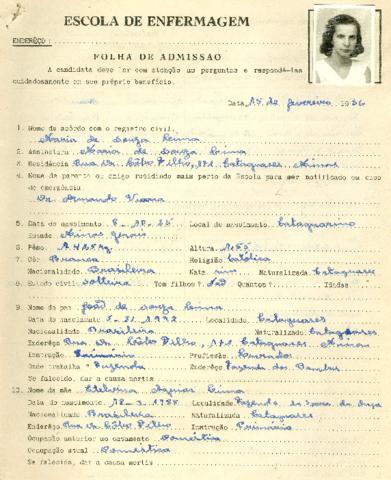 ESCOLA DE ENFERMAGEM
ENDERÊÇO:
FOLHA DE ADMISSÃO
A candidata deve ler com atenção as perguntas e respondê-las
cuidadosamente em seu próprio benefício.
Data, 15 de fevereiro 1956
1. Nome de acôrdo com o registro civil.
Maria de Souza Lima
2. Assinatura Maria de Souza Lima
3. Residência Rua Dr. Lôbo Filho, Cataguases Minas
4. Nome de parente ou amigo residindo mais perto da Escola para ser notificado em caso
de emergência
Dr. Armando Viana
5. Data do nascimento Local do nascimento Cataguarino
Estado Minas Gerais
6. Pêso Altura
7. Côr Branca Religião Católica
Nacionalidade Brasileira Naturalizada Cataguases
8. Estado civil solteira Tem filhos? Quantos? Idades
9. Nome do pai João de Souza Lima
Data do nascimento Localidade Cataguases
Nacionalidade Brasileira Naturalizado Cataguases
Enderêço Rua Dr. Lôbo Filho, Cataguases Minas
Instrução Primária Profissão Lavrador
Onde trabalha Fazenda Enderêço Fazenda dos
Se falecido, dar a causa mortis
10. Nome da mãe Aguiar Lima
Data do nascimento Localidade Fazenda
Nacionalidade Brasileira Naturalizada Cataguases
Enderêço Rua Dr. Lôbo Filho Instrução Primária
Ocupação anterior ao casamento Doméstica
Ocupação atual Doméstica
Se falecida, dar a causa mortis